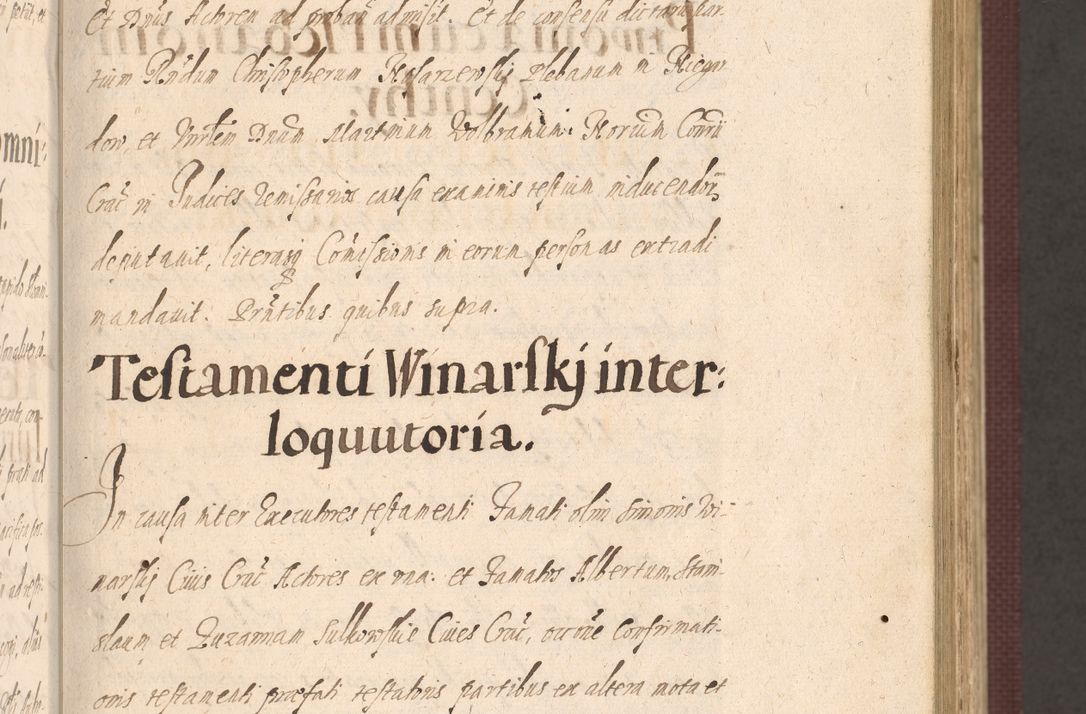 et Dnus Actorem ad proban admisit. Et de consensu dictarum par-
tium Rndum Christopherum Plebanum in
dow, et Dnum Martinum Wolbramum Notarium
Crac in Judices remissarios causa examinis testium inducendor
deputavit, literasq Comissionis in eorum personas extradi
mandavit. Prntibus quibus supra.
Testamenti Winarskj inter:
loquutoria.
In causa inter Executores testamenti Famati olim Simonis Wi-
narskj Civis Crac Actores ex una: et Famatos Albertum, Stani-
slaum et Zuzannam Sulkowskie Cives Crac, occone Confirmati-
onis testamenti præfati testatoris partibus ex altera mota et